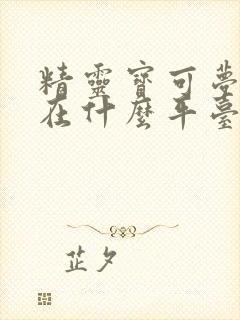 精靈寶可夢
在什麼平臺
芷夕